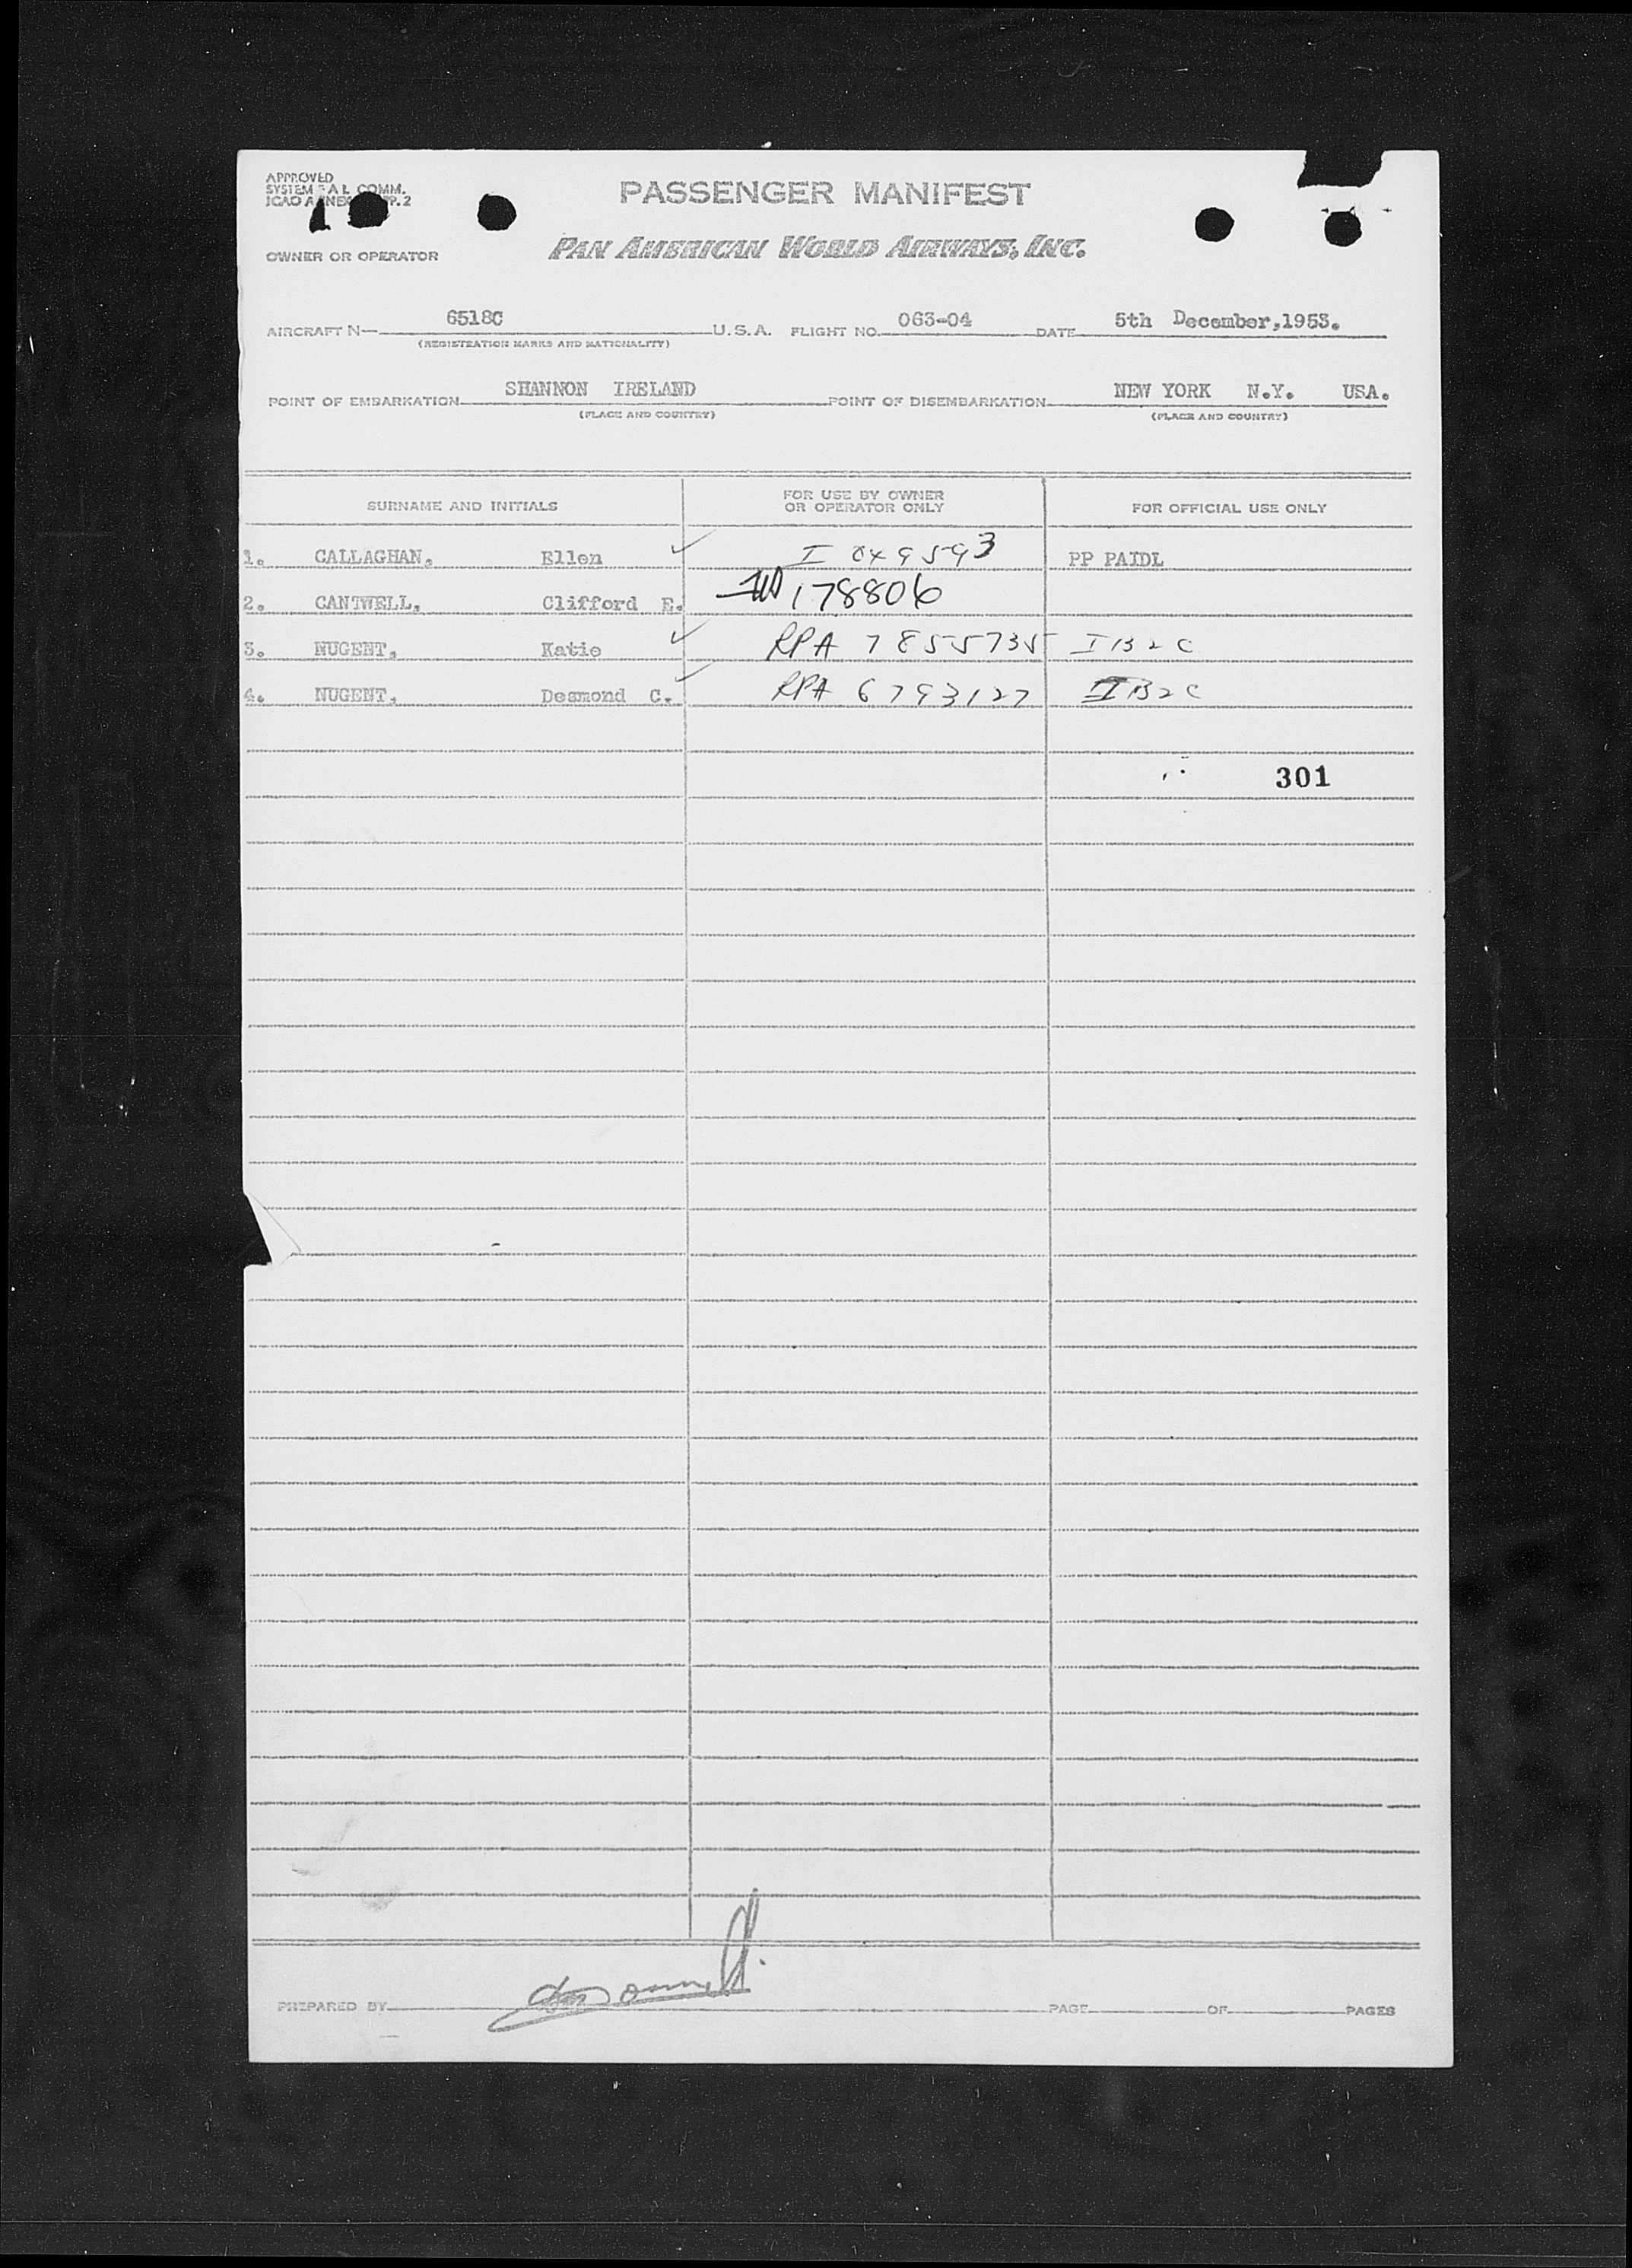 APPROVED
PASSENGER MANIFEST
SYSTEM F A L COMM.
ICAO ANNEX P.2
OWNER OR OPERATOR PAN AMERICAN WORLD AIRWAYS, INC.
AIRCRAFT N— 6518C U.S.A. FLIGHT NO. 063-04 DATE 5th December,1953.
(REGISTRATION MARKS AND NATIONALITY)
POINT OF EMBARKATION SHANNON IRELAND POINT OF DISEMBARKATION NEW YORK N.Y. USA.
(PLACE AND COUNTRY) (PLACE AND COUNTRY)
SURNAME AND INITIALS FOR USE BY OWNER OR OPERATOR ONLY FOR OFFICIAL USE ONLY
1. CALLAGHAN, Ellen ✓ I 049593 PP PAIDL
2. CANTWELL, Clifford E. 178806
3. NUGENT, Katie ✓ RPA 7855735 IB2C
4. NUGENT, Desmond C. ✓ RPA 6793127 IB2C
301
PREPARED BY PAGE OF PAGES